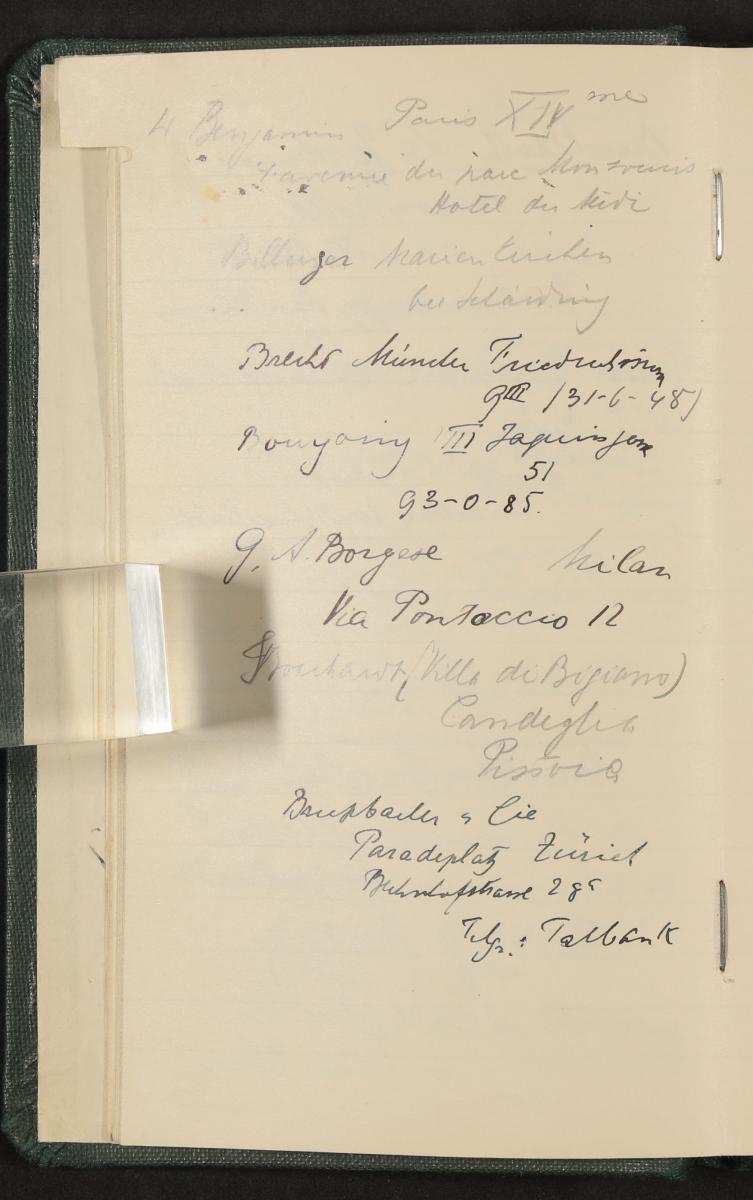 W Benjamin Paris XIV me
4 avenue du parc Monsouris
Hotel du Midi
Billinger Marienkirchen
bei Schärding
Brecht München Friedrichstr
9III (31-6-48)
III
51
93-0-85.
G. A. Borgese Milan
Via Pontaccio 12
(Villa di Bigiano)
Candeglia
Pistoia
Brupbacher & Cie
Paradeplatz Zürich
Bahnhofstrasse
Telgr.: Talbank